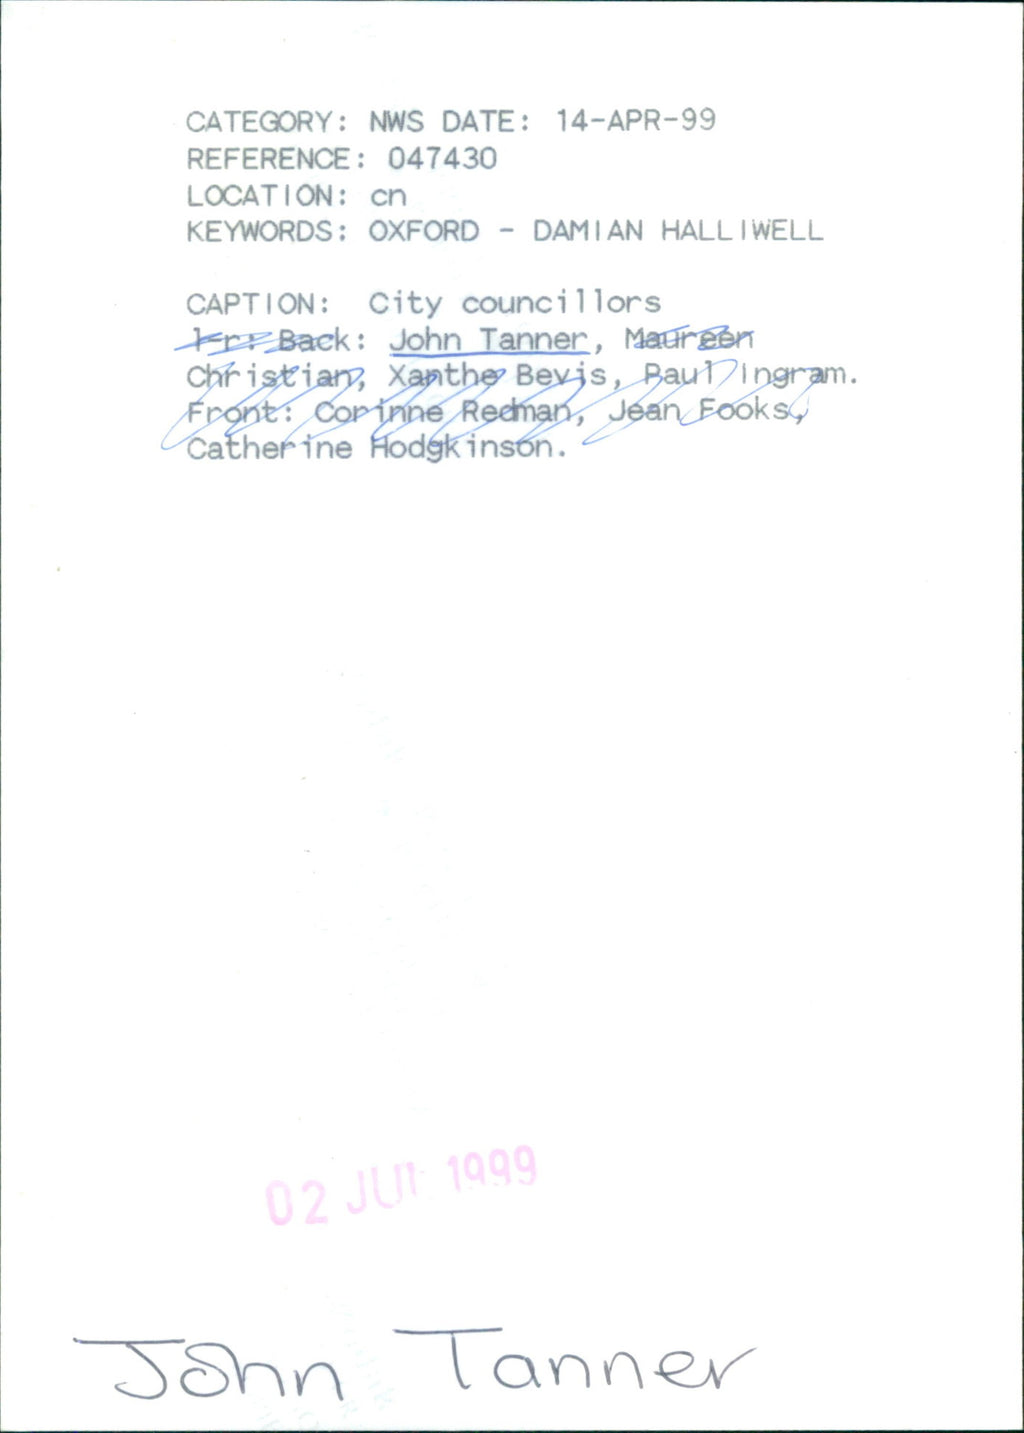 CATEGORY: NWS DATE: 14-APR-99
REFERENCE: 047430
LOCATION: cn
KEYWORDS: OXFORD - DAMIAN HALLIWELL
CAPTION: City councillors
l-r: Back: John Tanner, Maureen
Christian, Xanthe Bevis, Paul Ingram.
Front: Corinne Redman, Jean Fooks,
Catherine Hodgkinson.
02 1999
John Tanner